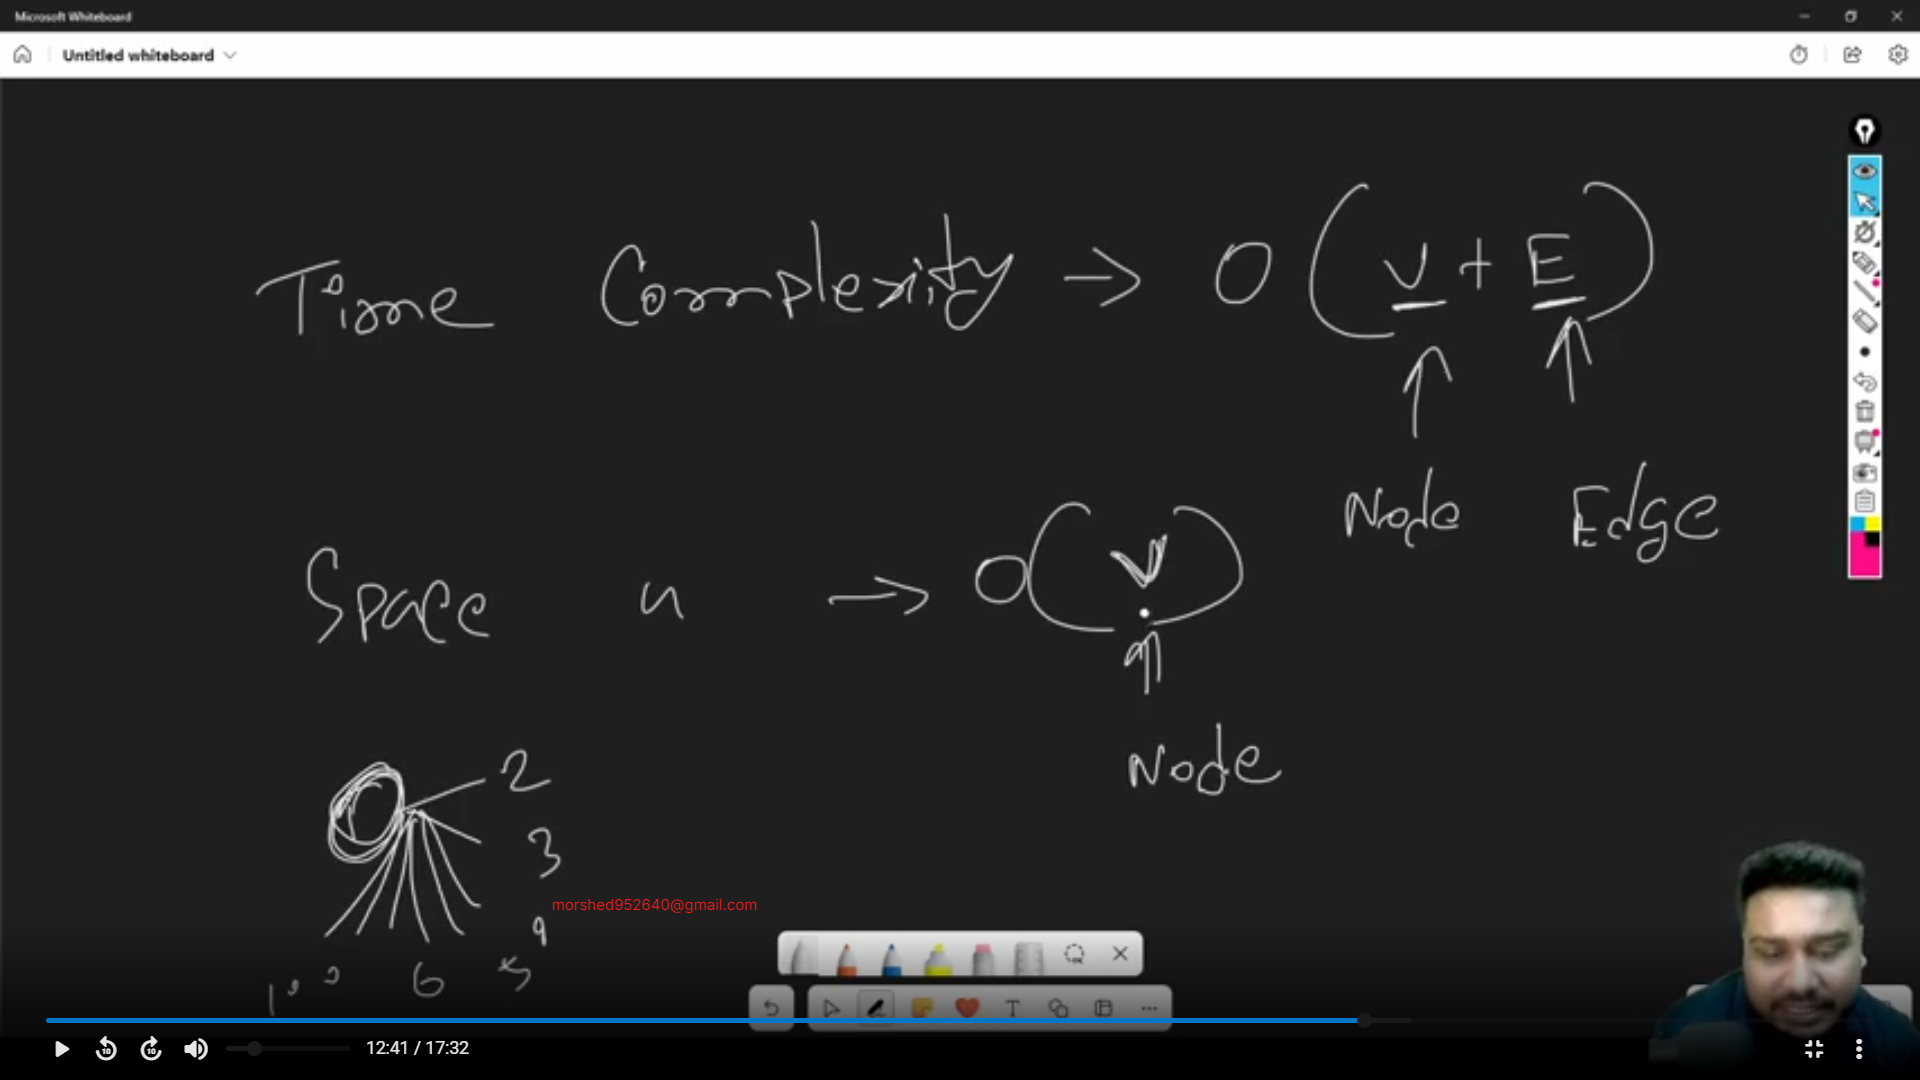 Microsoft Whiteboard
Untitled whiteboard
Time Complexity → O (V + E)
Node Edge
Space " → O(V)
Node
2
3
morshed952640@gmail.com
6 5
10
10
12:41 / 17:32